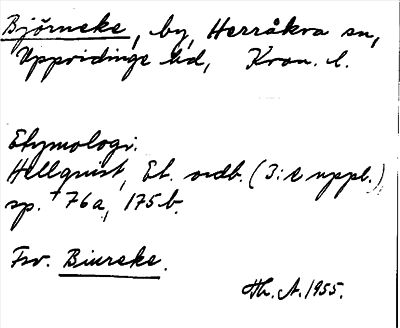 Björneke, by, Herråkra sn,
Uppvidinge hd, Kron. l.
Etymologi.
Hellquist, Et. ordb. (3:e uppl.)
sp. 76a, 175b.
Fsv. Biureke.
Th. A. 1955.